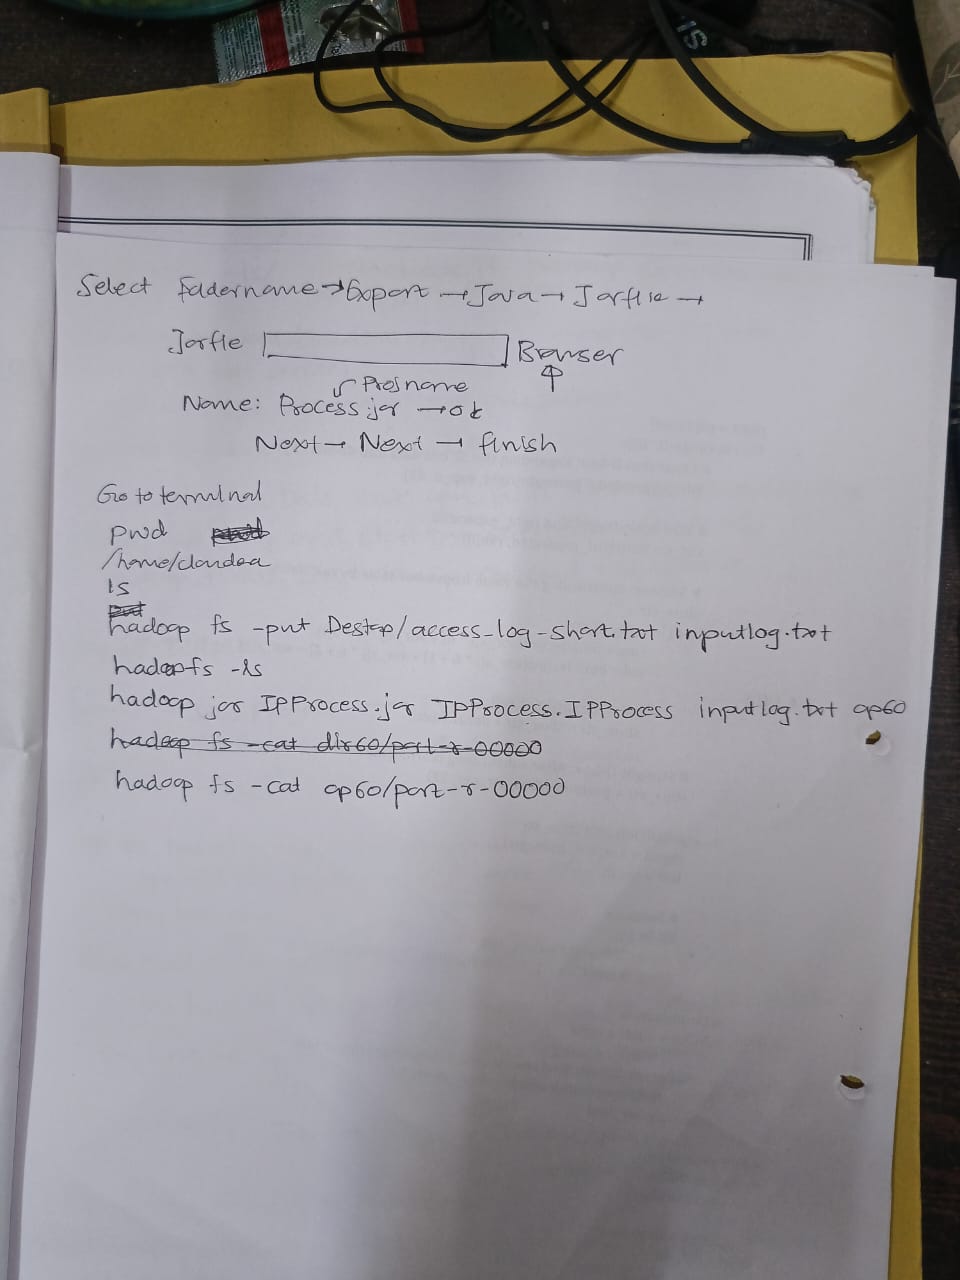 Select Fodername → Export → Java → Jarfile →
Jarfle Browser
Projname
Name: Process.jar → ok
Next → Next → finish
Go to terminal
pwd
/home/cloudea
ls
hadoop fs -put Destop/access_log-short.txt inputlog.txt
hadoopfs -ls
hadoop jar IPProcess.jar IPProcess.IPProcess inputlog.txt op60
hadoop fs -cat dir60/part-r-00000
hadoop fs -cat op60/part-r-00000